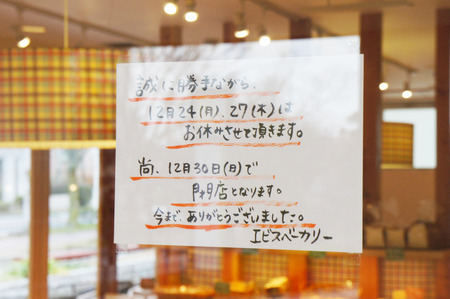 誠に勝手ながら、
12月24(月)、27(木)は
お休みさせて頂きます。
尚、12月30日(日)で
閉店となります。
今まで、ありがとうございました。
エビスベーカリー